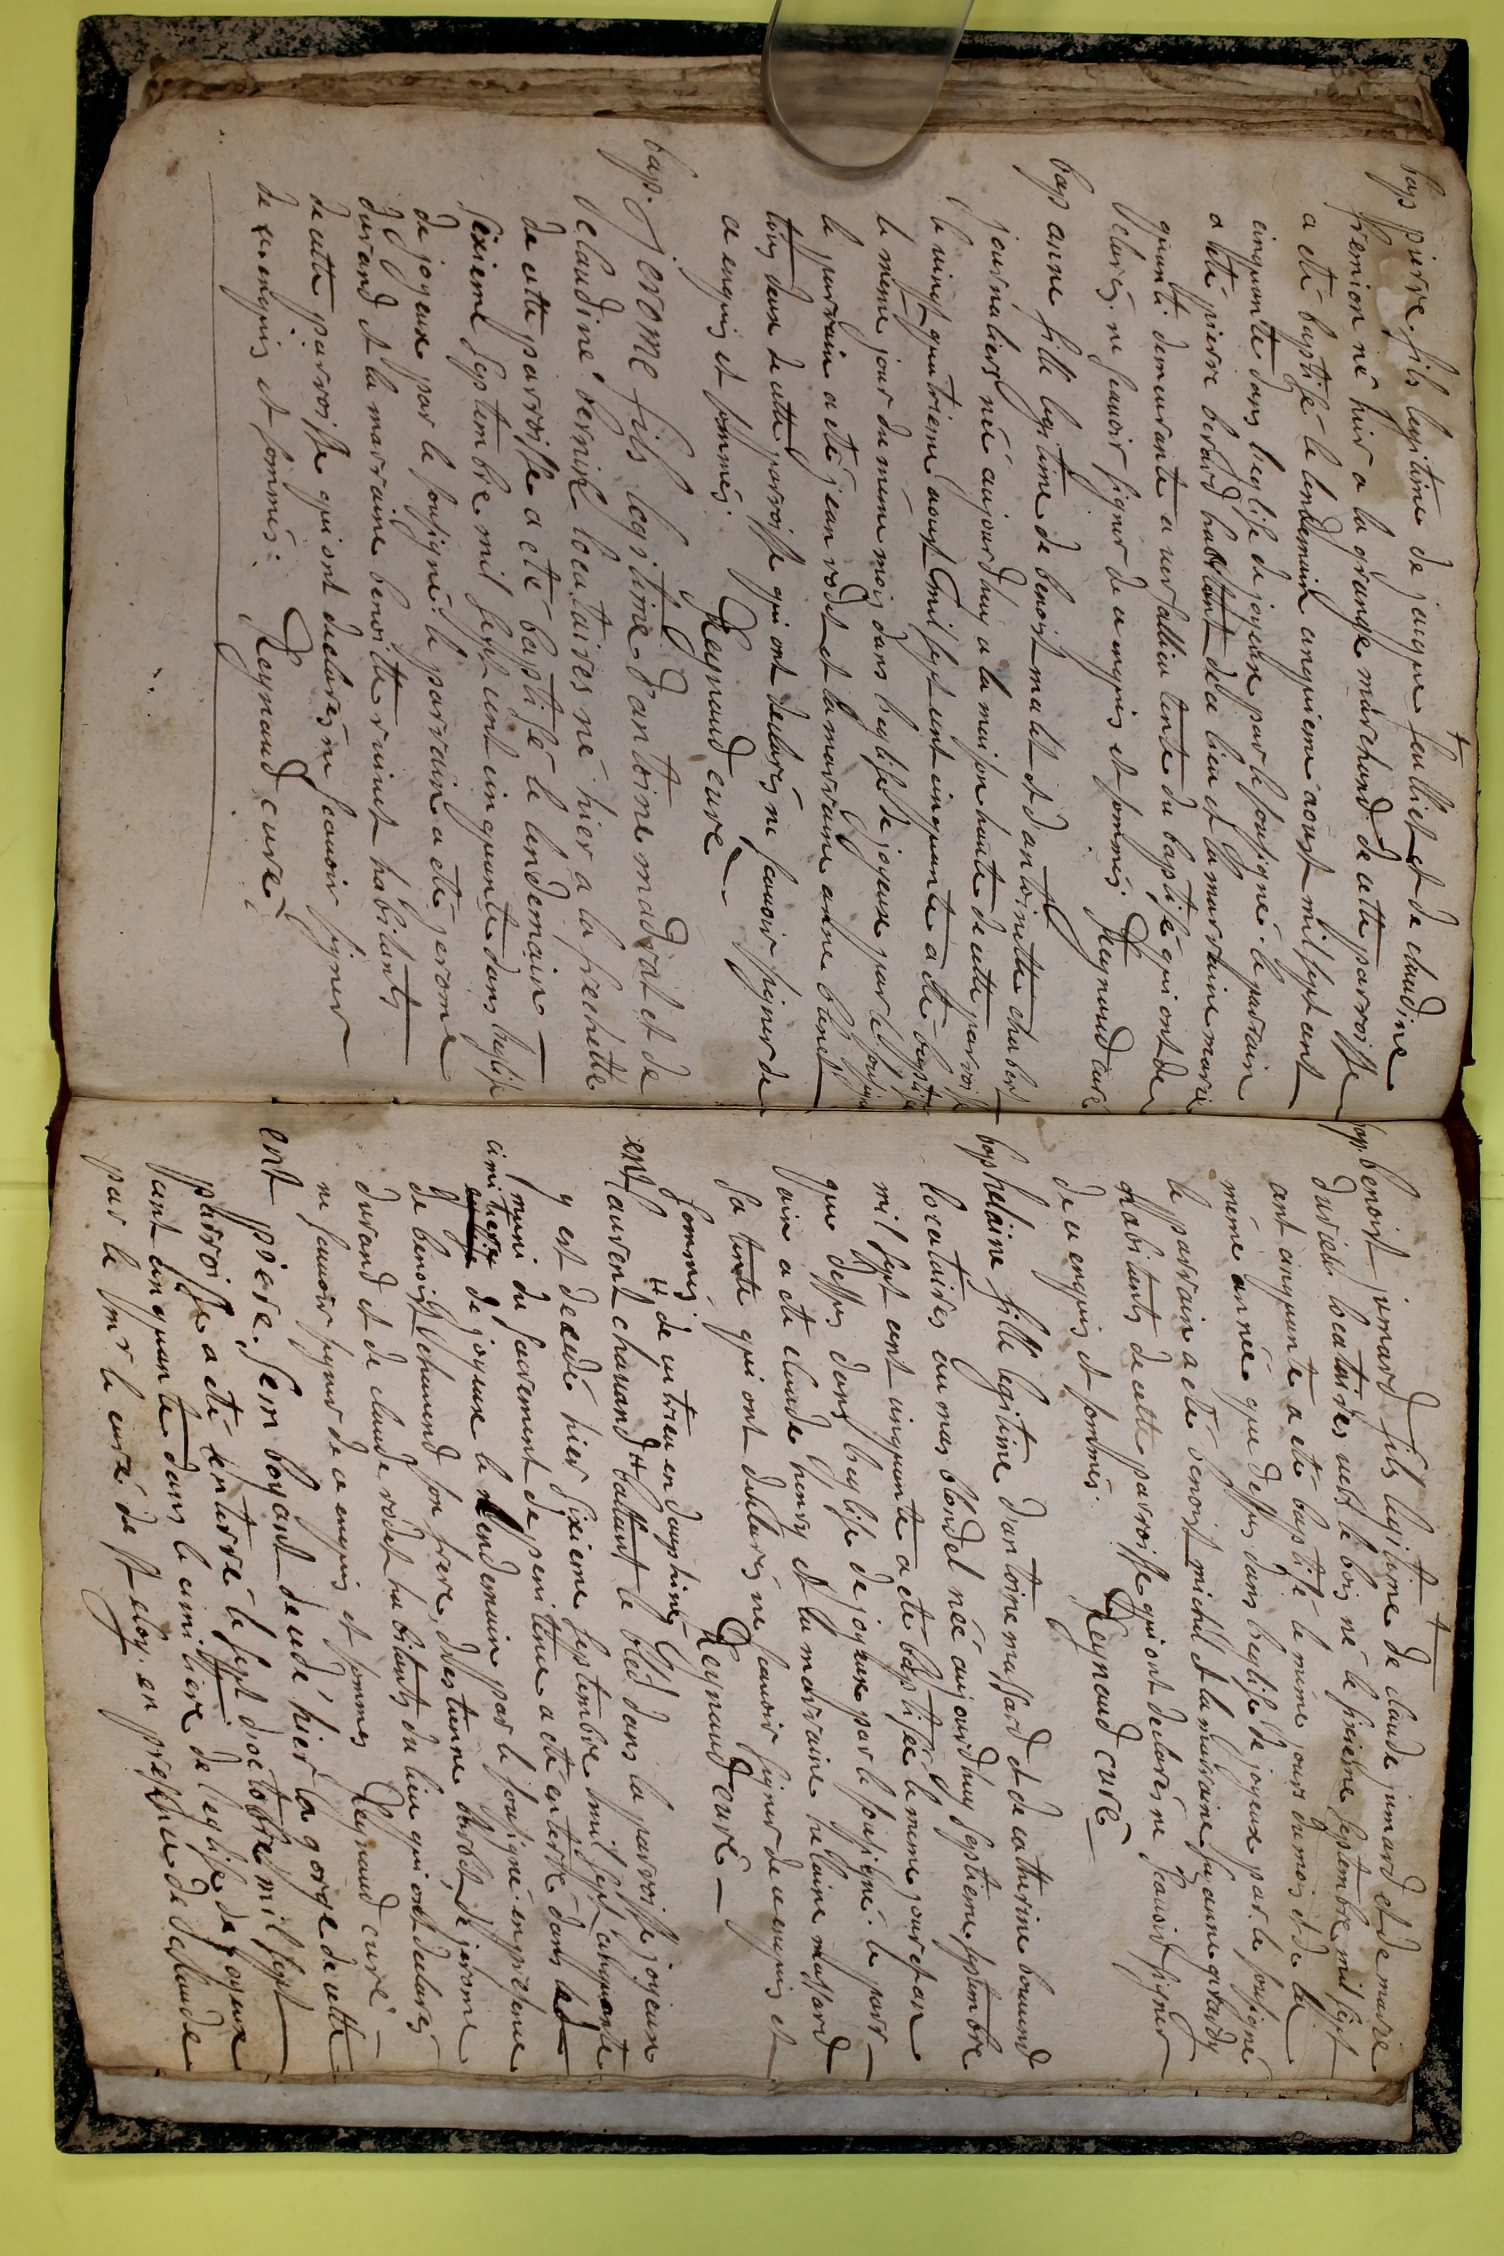 bap pierre fils legitime de jacque feulliet et de claudine
fremion né hier a la grange marchand de cette parroisse
a eté baptisé le lendemain cinquieme aoust mil sept cent
cinquante dans l'eglise de joyeux par le soussigné. le parrain
a eté pierre berard habitant de ce lieu et la marraine marie
quanti demeurante a versallieu tente du baptisé qui ont de
clarés ne scavoir signer de ce enquis et sommés. Reynaud curé
bap anne fille legitime de benoist malet et d'antoinette chabert
journaliers née aujourdhuy a la maison haute de cette parroisse
le vingt quatrieme aoust mil sept cent cinquante a eté baptisée
le meme jour du meme mois dans l'eglise de joyeux par le soussigné
le parrain a eté jean rodet et la marraine anne banet
tous deux de cette parroisse qui ont declarés ne scavoir signer de
ce enquis et sommés. Reynaud curé
bap. jerome fils legitime d'antoine madrat et de
claudine bernin locataires né hier a la frechette
de cette parroisse a eté baptisé le lendemain
sixieme septembre mil sept cent cinquante dans l'eglise
de joyeux par le soussigné. le parrain a eté jerome
durand et la marraine benoitte ruinet habitants
de cette parroisse qui ont declarés ne scavoir signer
de ce enquis et sommés. Reynaud curé
bap. benoist jumard fils legitime de claude jumard et de marie
locataires vers le bois né le sixieme septembre mil sept
cent cinquante a eté baptisé le meme jour du mois et de la
meme année que dessus dans l'eglise de joyeux par le soussigné
le parrain a eté benoist michel et la marraine susanne
habitants de cette parroisse qui ont declarés ne scavoir signer
de ce enquis et sommés. Reynaud curé
bap helaine fille legitime d'antoine massard et de catherine
locataires au mas blondel née aujourdhuy septieme septembre
mil sept cent cinquante a eté baptisée le meme jour et an
que dessus dans l'eglise de joyeux par le soussigné. le parr
ain a eté claude henry et la marraine helaine massard
sa tente qui ont declarés ne scavoir signer de ce enquis et
sommés Reynaud curé
# de vitrieu en dauphiné
ent laurent chanand # battant le bled dans la parroisse joyeux
y est decedé hier sixieme septembre mil sept cinquante
muni du sacrement de penitence a eté enterré dans led
cimitiere de joyeux le lendemain par le soussigné. en presence
de benoist chanand son frere, d'estienne barbet, de jerome
durand et de claude rodet habitants du lieu qui ont declarés
ne scavoir signer de ce enquis et sommes Reynaud curé
ent pierre. sein boyant decedé hier la gorge de cette
parroisse a eté enterré le sept d'octobre mil sept
cent cinquante dans le cimitiere de l'eglise de joyeux
par le smr le curé de st eloy. en presence de claude